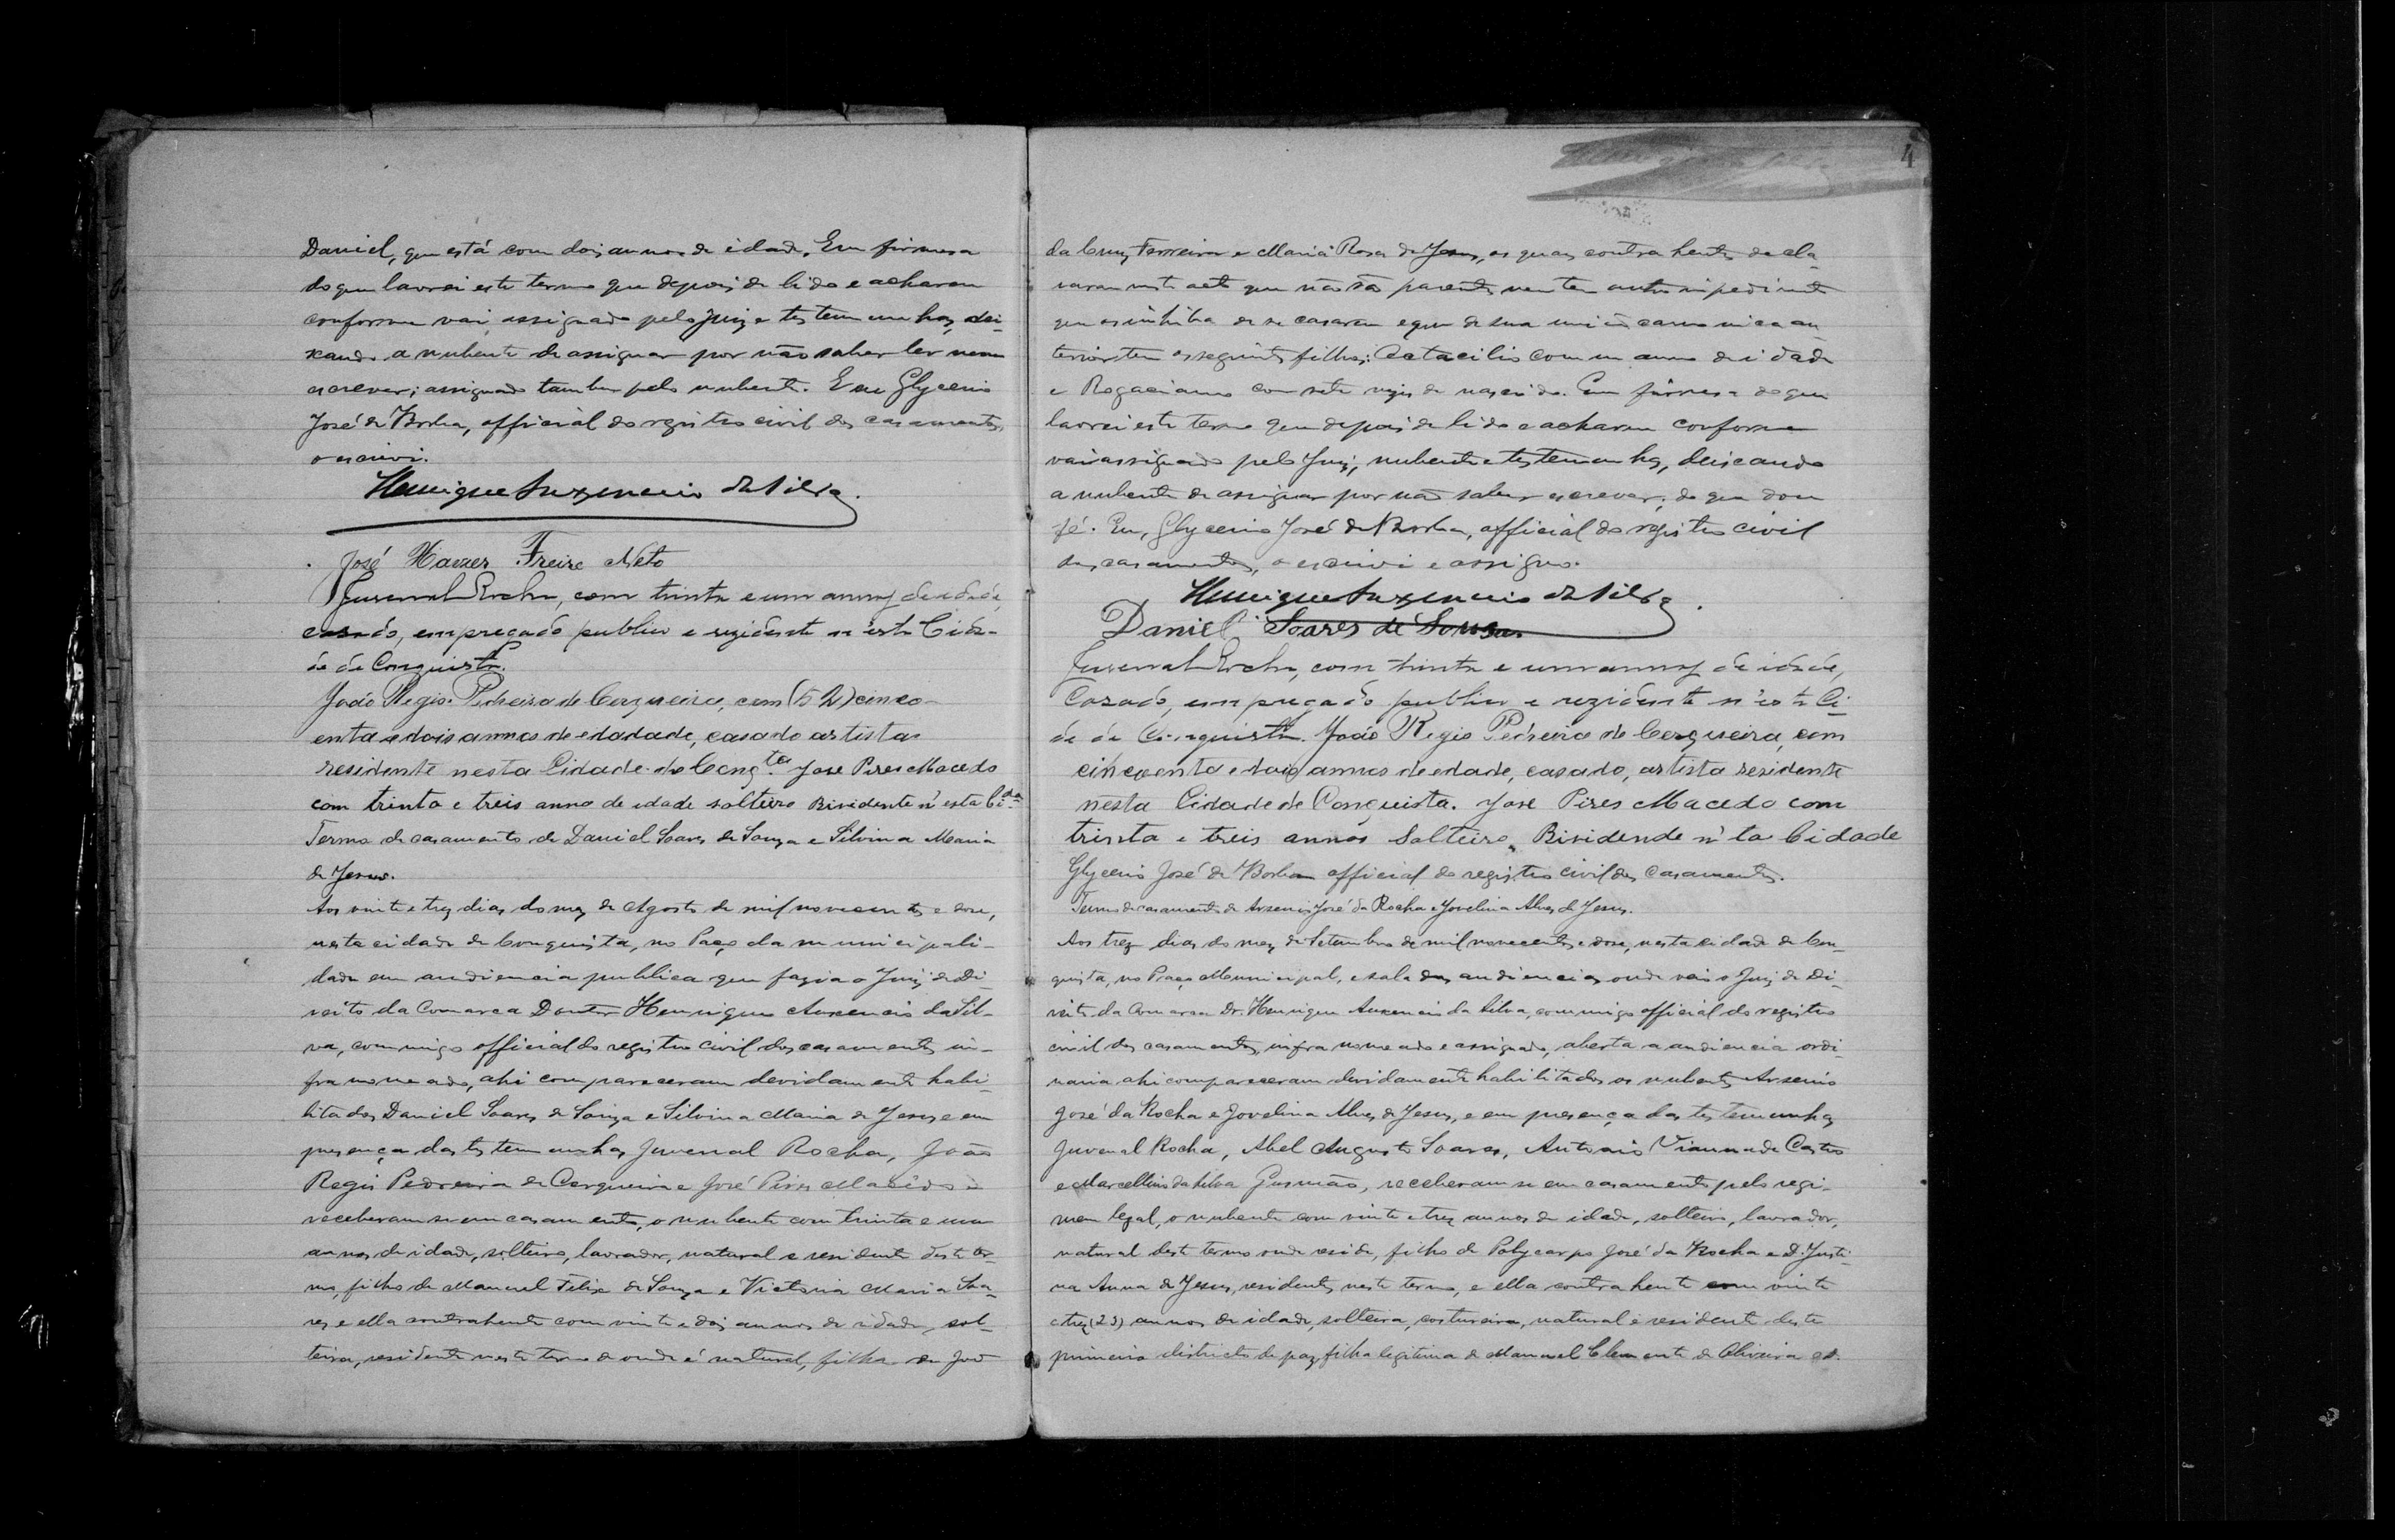 Daniel, que está com dois annos de idade. Em firmesa
do que lavrei este termo que depois de lido e acharam
conforme vai assignado pelo Juiz e testemunhas, dei-
xando a nubente de assignar por não saber ler nem
escrever; assignado tambem pelo nubente. Eu Glycerio
José de Borba, official do registro civil dos casamentos,
o escrivi.
Henrique Auxencio da Silva.
José Xavier Freire Neto
Juvenal Rocha, com trinta e um annos de idade,
casado, empregado publico e rezidente n'esta Cida-
de de Conquista.
João Regis Pedreira de Cerqueira, com (52) cinco-
enta e dois annos de edadade, casado artista
residente nesta Cidade de Conq.ta José Pires Macedo
com trinta e treis anno de idade solteiro Risidente n'esta Ci.de
Termo de casamento de Daniel Soares de Souza e Silvina Maria
de Jesus.
Aos vinte e tres dias do mez de Agosto de mil novecentos e dose,
nesta cidade de Conquista, no Paço da municipali-
dade em audiencia publica que fazia o Juiz de Di-
reito da Comarca Doutor Henrique Auxencio da Sil-
va, commigo official do registro civil dos casamentos in-
fra nomeado, ahi compareceram devidamente habi-
litados Daniel Soares de Souza e Silvina Maria de Jesus e em
presença das testemunhas Juvenal Rocha, João
Regis Pedreira de Cerqueira e José Pires Macêdo e
receberam-se em casamento, o nubente com trinta e um
annos de idade, solteiro, lavrador, natural e residente deste ter-
mo, filho de Manuel Felix de Souza e Victoria Maria Soa-
res e ella contrahente com vinte e dois annos de idade, sol-
teira, residente neste termo de onde é natural, filha de José
4
da Cruz Ferreira e Maria Rosa de Jesus, os quaes contrahentes decla-
raram neste acto que não são parentes nem tem outro impedimento
que os inhiba de se casarem e que de sua união canonica an-
terior tem os seguintes filhos: Octacilio com um anno de idade
e Rogaciano com sete mezes de nascido. Em firmesa do que
lavrei este termo que depois de lido e acharam conforme
vai assignado pelo Juiz, nubente e testemunhas, deixando
a nubente de assignar por não saber escrever; do que dou
fé. Eu, Glycerio José de Borba, official do registro civil
dos casamentos, o escrivi e assigno.
Henrique Auxencio da Silva.
Daniel Soares de Souza
Juvenal Rocha, com trinta e um annos de idade,
Cazado, empregado publico e rezidente n'esta Ci-
de de Conquista. João Regis Pedreira de Cerqueira, com
cincoenta e dois annos de edade, casado, artista residente
nesta Cidade de Conquista. José Pires Macedo com
trinta e treis annos Solteiro, Risidende n'ta Cidade
Glycerio José de Borba official do registro civil dos Casamentos.
Termo de casamento de Arsenio José da Rocha e Jovelina Alves de Jesus.
Aos trez dias do mez de Setembro de mil novecentos e dose, nesta cidade de Con-
quista, no Paço Municipal, e sala das audiencias onde veio o Juiz de Di-
reito da Comarca Dr. Henrique Auxencio da Silva, commigo official do registro
civil dos casamentos, infra nomeado e assignado, aberta a audiencia ordi-
naria ahi compareceram devidamente habilitados os nubentes Arsenio
José da Rocha e Jovelina Alves de Jesus, e em presença das testemunhas
Juvenal Rocha, Abel Augusto Soares, Antonio Vianna de Castro
e Marcellino da Silva Gusmão, receberam-se em casamento pelo regi-
men legal, o nubente com vinte e trez annos de idade, solteiro, lavrador,
natural deste termo onde reside, filho de Polycarpo José da Rocha e D. Justi-
na Anna de Jesus, residentes neste termo, e ella contrahente com vinte
e trez (23) annos de idade, solteira, costureira, natural e residente deste
primeiro districto de paz, filha legitima de Manuel Clemente de Oliveira e D.